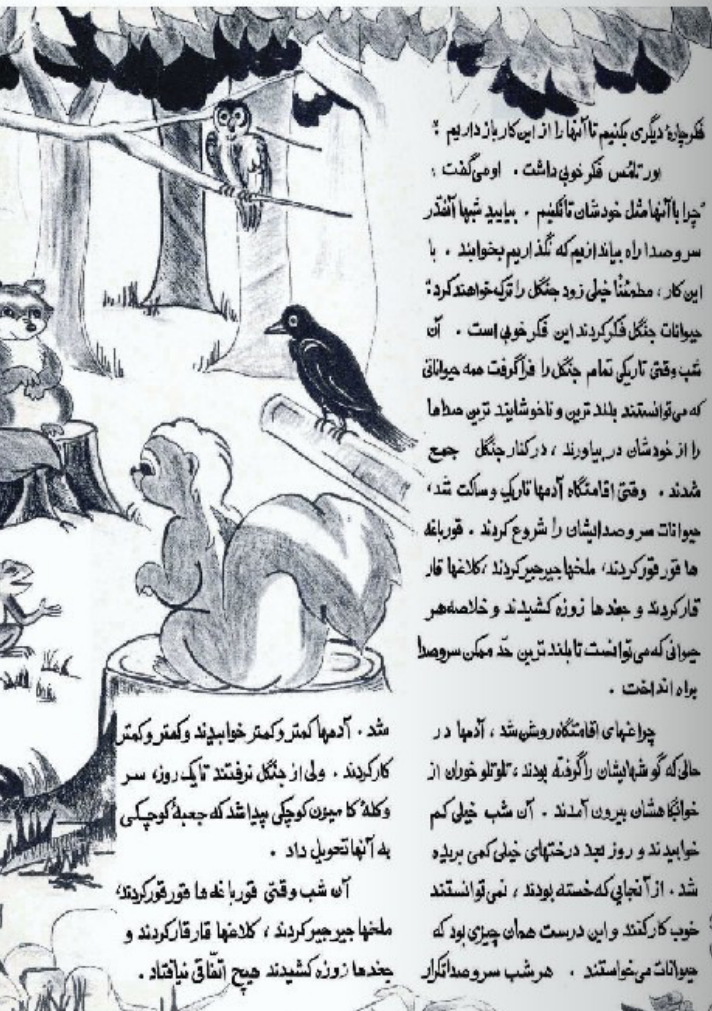 فکر چارهٔ دیگری بکنیم تا آنها را از این کار باز داریم ؟
پور تامس فکر خوبی داشت . او می‌گفت :
"چرا با آنها مثل خودشان تا نکنیم . بیایید شبها آنقدر
سر و صدا راه بیاندازیم که نگذاریم بخوابند . با
این کار ، مطمئنًا خیلی زود جنگل را ترک خواهند کرد"
حیوانات جنگل فکر کردند این فکر خوبی است . آن
شب وقتی تاریکی تمام جنگل را فرا گرفت همه حیواناتی
که می‌توانستند بلند ترین و ناخوشایند ترین صداها
را از خودشان در بیاورند ، در کنار جنگل جمع
شدند . وقتی اقامتگاه آدمها تاریک و ساکت شد ،
حیوانات سر و صدایشان را شروع کردند . قورباغه
ها قور قور کردند ، ملخها جیرجیر کردند ، کلاغها قار
قار کردند و جغد ها زوزه کشیدند و خلاصه هر
حیوانی که می‌توانست تا بلند ترین حدّ ممکن سر و صدا
براه انداخت .
چراغهای اقامتگاه روشن شد ، آدمها در
حالی که گوشهایشان را گرفته بودند ، تلوتلو خوران از
خوابگاهشان بیرون آمدند . آن شب خیلی کم
خوابیدند و روز بعد درختهای خیلی کمی بریده
شد . از آنجایی که خسته بودند ، نمی‌توانستند
خوب کار کنند و این درست همان چیزی بود که
حیوانات می‌خواستند . هر شب سر و صدا تکرار
شد . آدمها کمتر و کمتر خوابیدند و کمتر و کمتر
کار کردند . ولی از جنگل نرفتند تا یک روز ، سر
و کلهٔ کامیون کوچکی پیدا شد که جعبهٔ کوچیکی
به آنها تحویل داد .
آن شب وقتی قورباغه ها قور قور کردند ،
ملخها جیر جیر کردند ، کلاغها قار قار کردند و
جغد ها زوزه کشیدند هیچ اتّفاقی نیافتاد .